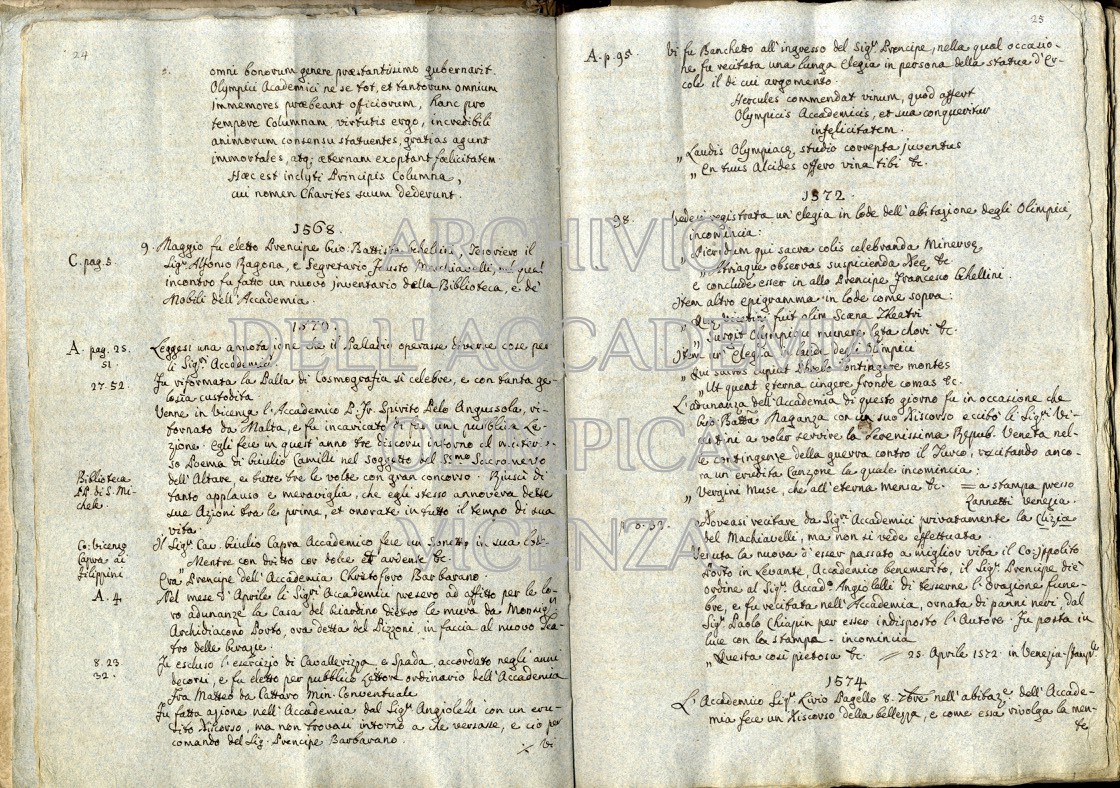 24
omni bonorum genere præstantissimo gubernarit.
Olympici Academici ne se tot, et tantorum omnium
immemores præbeant officiorum, hanc pro
tempore Columnam, virtutis ergo, incredibili
animorum consensu statuentes, gratias agunt
immortales, atq; æternam exoptant fœlicitatem
Hæc est inclyti Principis Columna,
cui nomen Charites suum dederunt.
1568.
9. Maggio fu eletto Prencipe Gio: Battista Ghellini, Tesoriero il
C. pag. 5.
Sigr. Alfonso Ragona, e Segretario Fausto Macchiavelli, nel qual
incontro fu fatto un nuovo inventario della Biblioteca, e de'
Mobili dell'Accademia.
1570.
A. pag. 25. Leggesi una annotazione che il Palladio operasse diverse cose per
51. li Sigri. Accademici.
27. 52. Fu riformata la Palla di Cosmografia sì celebre, e con tanta ge-
losia custodita
Venne in Vicenza l'Accademico P. Fr. Spirito Pelo Angussola, ri-
tornato da Malta, e fu incaricato di far una pubblica Le-
zione. Egli fece in quest'anno tre discorsi intorno al misterio-
so Poema di Giulio Camilli nel soggetto del Smo. Sacramento
dell'Altare, e tutte tre le volte con gran concorso. Riuscì di
Biblioteca
PP. di S. Mi-
chele.
tanto applauso e meraviglia, che egli stesso annovera dette
sue Azioni tra le prime, et onorate in tutto il tempo di sua
vita.
Co: Vicenzo
Capra ai
Filippini
Il Sigr. Cav. Giulio Capra Accademico fece un Sonetto in sua lode
Mentre con dritto cor dolce et ardente &c.
Era Prencipe dell'Accademia Christoforo Barbarano.
A. 4. Nel mese d'Aprile li Sigri. Accademici presero ad affitto per le lo-
ro adunanze la Casa del Giardino dietro le mura da Monsigr.
Archidiacono Porto, ora detta del Pizzoni, in faccia al nuovo Tea-
tro delle Grazie.
8. 23. Fu escluso l'esercizio di Cavallerizza, e Spada, accordato negli anni
32. decorsi, e fu eletto per pubblico Lettore ordinario dell'Accademia
Fra Matteo da Cattaro Min. Conventuale
Fu fatta azione nell'Accademia dal Sigr. Angiolelli con un eru-
dito Discorso, ma non trovasi intorno a che versasse, e ciò per
comando del Sig. Prencipe Barbarano.
Vi
25
A. p. 95. Vi fu Banchetto all'ingresso del Sigr. Prencipe, nella qual occasio-
ne fu recitata una lunga Elegia in persona della statua d'Er-
cole il di cui argomento.
Hercules commendat vinum, quod affert
Olympicis Accademicis, et sua conqueritur
infelicitatem.
„ Laudis Olympiacæ studio correpta juventus
„ En tuus Alcides offero vina tibi &c.
1572.
98. Vedesi registrata un'elegia in lode dell'abitazione degli Olimpici,
incomincia:
„ Pieridum qui sacra colis celebranda Minervæ
„ Utriaque observas suspicienda Deæ &c.
e conclude esser in allo Prencipe Francesco Ghellini.
Item altro epigramma in lode come sopra:
„ fuit olim Scæna Theatri
„ Surgit Olympiaci munere læta chori &c.
Item un'Elegia in laude degli Olimpici
„ Qui sacros cupiat Phœbo contingere montes
„ Ut queat æterna cingere fronde comas &c.
L'adunanza dell'Accademia di questo giorno fu in occasione che
Gio: Batta. Maganza con un suo Discorso eccitò li Sigri. Vi-
centini a voler servire la Serenissima Repub. Veneta nel-
le contingenze della guerra contro il Turco, recitando anco-
ra un'erudita Canzone la quale incomincia:
„ Vergini Muse, che all'eterna Mensa &c. = a stampa presso
Zannetti Venezia.
Doveasi recitare da Sigri. Accademici privatamente la Clizia
del Machiavelli, ma non si vede effettuata
Venuta la nuova d'esser passato a miglior vita il Co: Ippolito
Porto in Levante, Accademico benemerito, il Sigr. Prencipe die'
ordine al Sigr. Accado. Angiolelli di tesserne l'Orazione fune-
bre, e fu recitata nell'Accademia, ornata di panni neri, dal
Sigr. Paolo Chiapin per esser indisposto l'Autore. Fu posta in
luce con la stampa - incomincia
„ Questa così pietosa &c. = 25. Aprile 1572. in Venezia
1574.
L'Accademico Sigr. Livio Pagello 8. Xbre nell'abitaze. dell'Accade-
mia fece un Discorso della bellezza, e come essa rivolga la men-
te
ARCHIVIO
DELL'ACCADEMIA
OLIMPICA
VICENZA